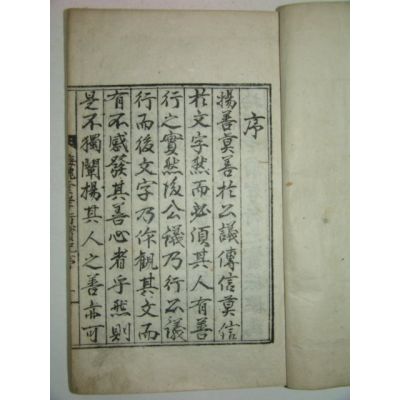 序
揚善莫善於公議傳信莫信
於文字然而必須其人有善
行之實然後公議乃行公議
行而後文字乃作觀其文而
有不感發其善心者乎然則
是不獨闡揚其人之善亦可